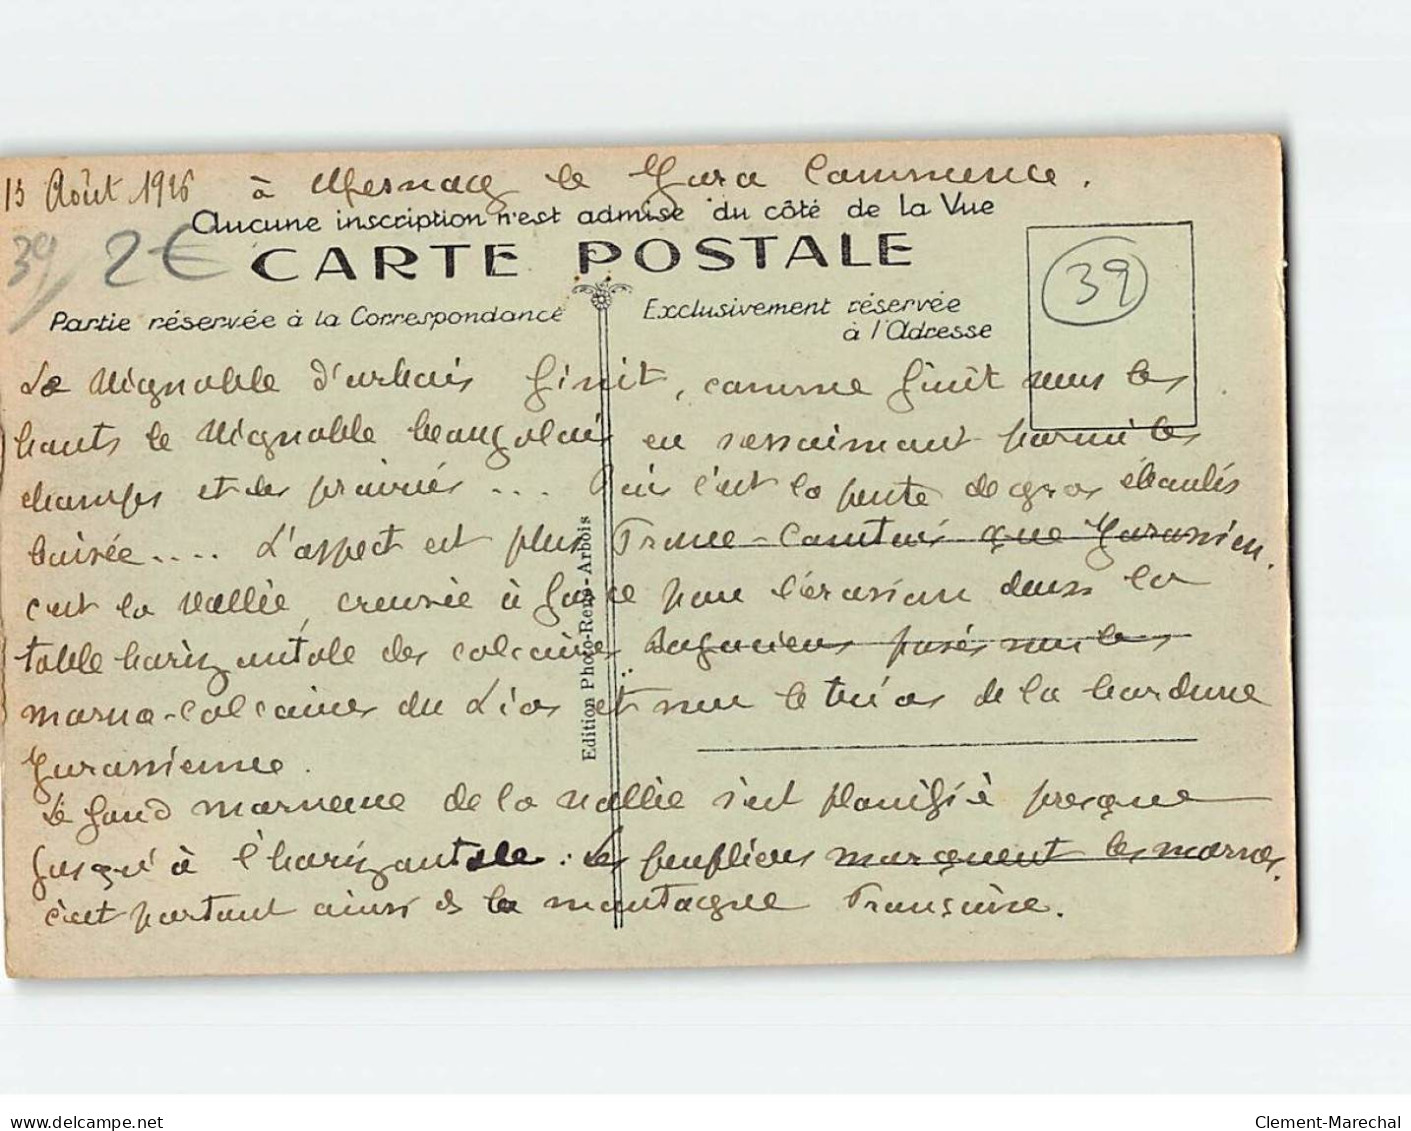 13 Août 1926 à Mesnay le Jura Commence.
Aucune inscription n'est admise du côté de la Vue
39 2€
CARTE POSTALE
39
Partie réservée à la Correspondance
Exclusivement réservée
à l'Adresse
Le vignoble d'arbois finit, comme finit vers les
hauts le vignoble beaujolais en s'essaimant parmi les
champs et les prairies ... Puis c'est la pente de gros éboulis
boisée .... L'aspect est plus Franc-Comtois que Jurassien.
c'est la vallée, creusée à force par l'érosion dans la
table horizontale des calcaires posés sur les
marno-calcaires du Lias et sur le trias de la bordure
Jurassienne.
Le fond marneux de la vallée s'est planifié presque
jusqu'à l'horizontale : les peupliers marquent les marnes.
c'est partout ainsi ds la montagne Française.
Edition Photo-Reps-Arbois
www.delcampe.net
Clement-Marechal